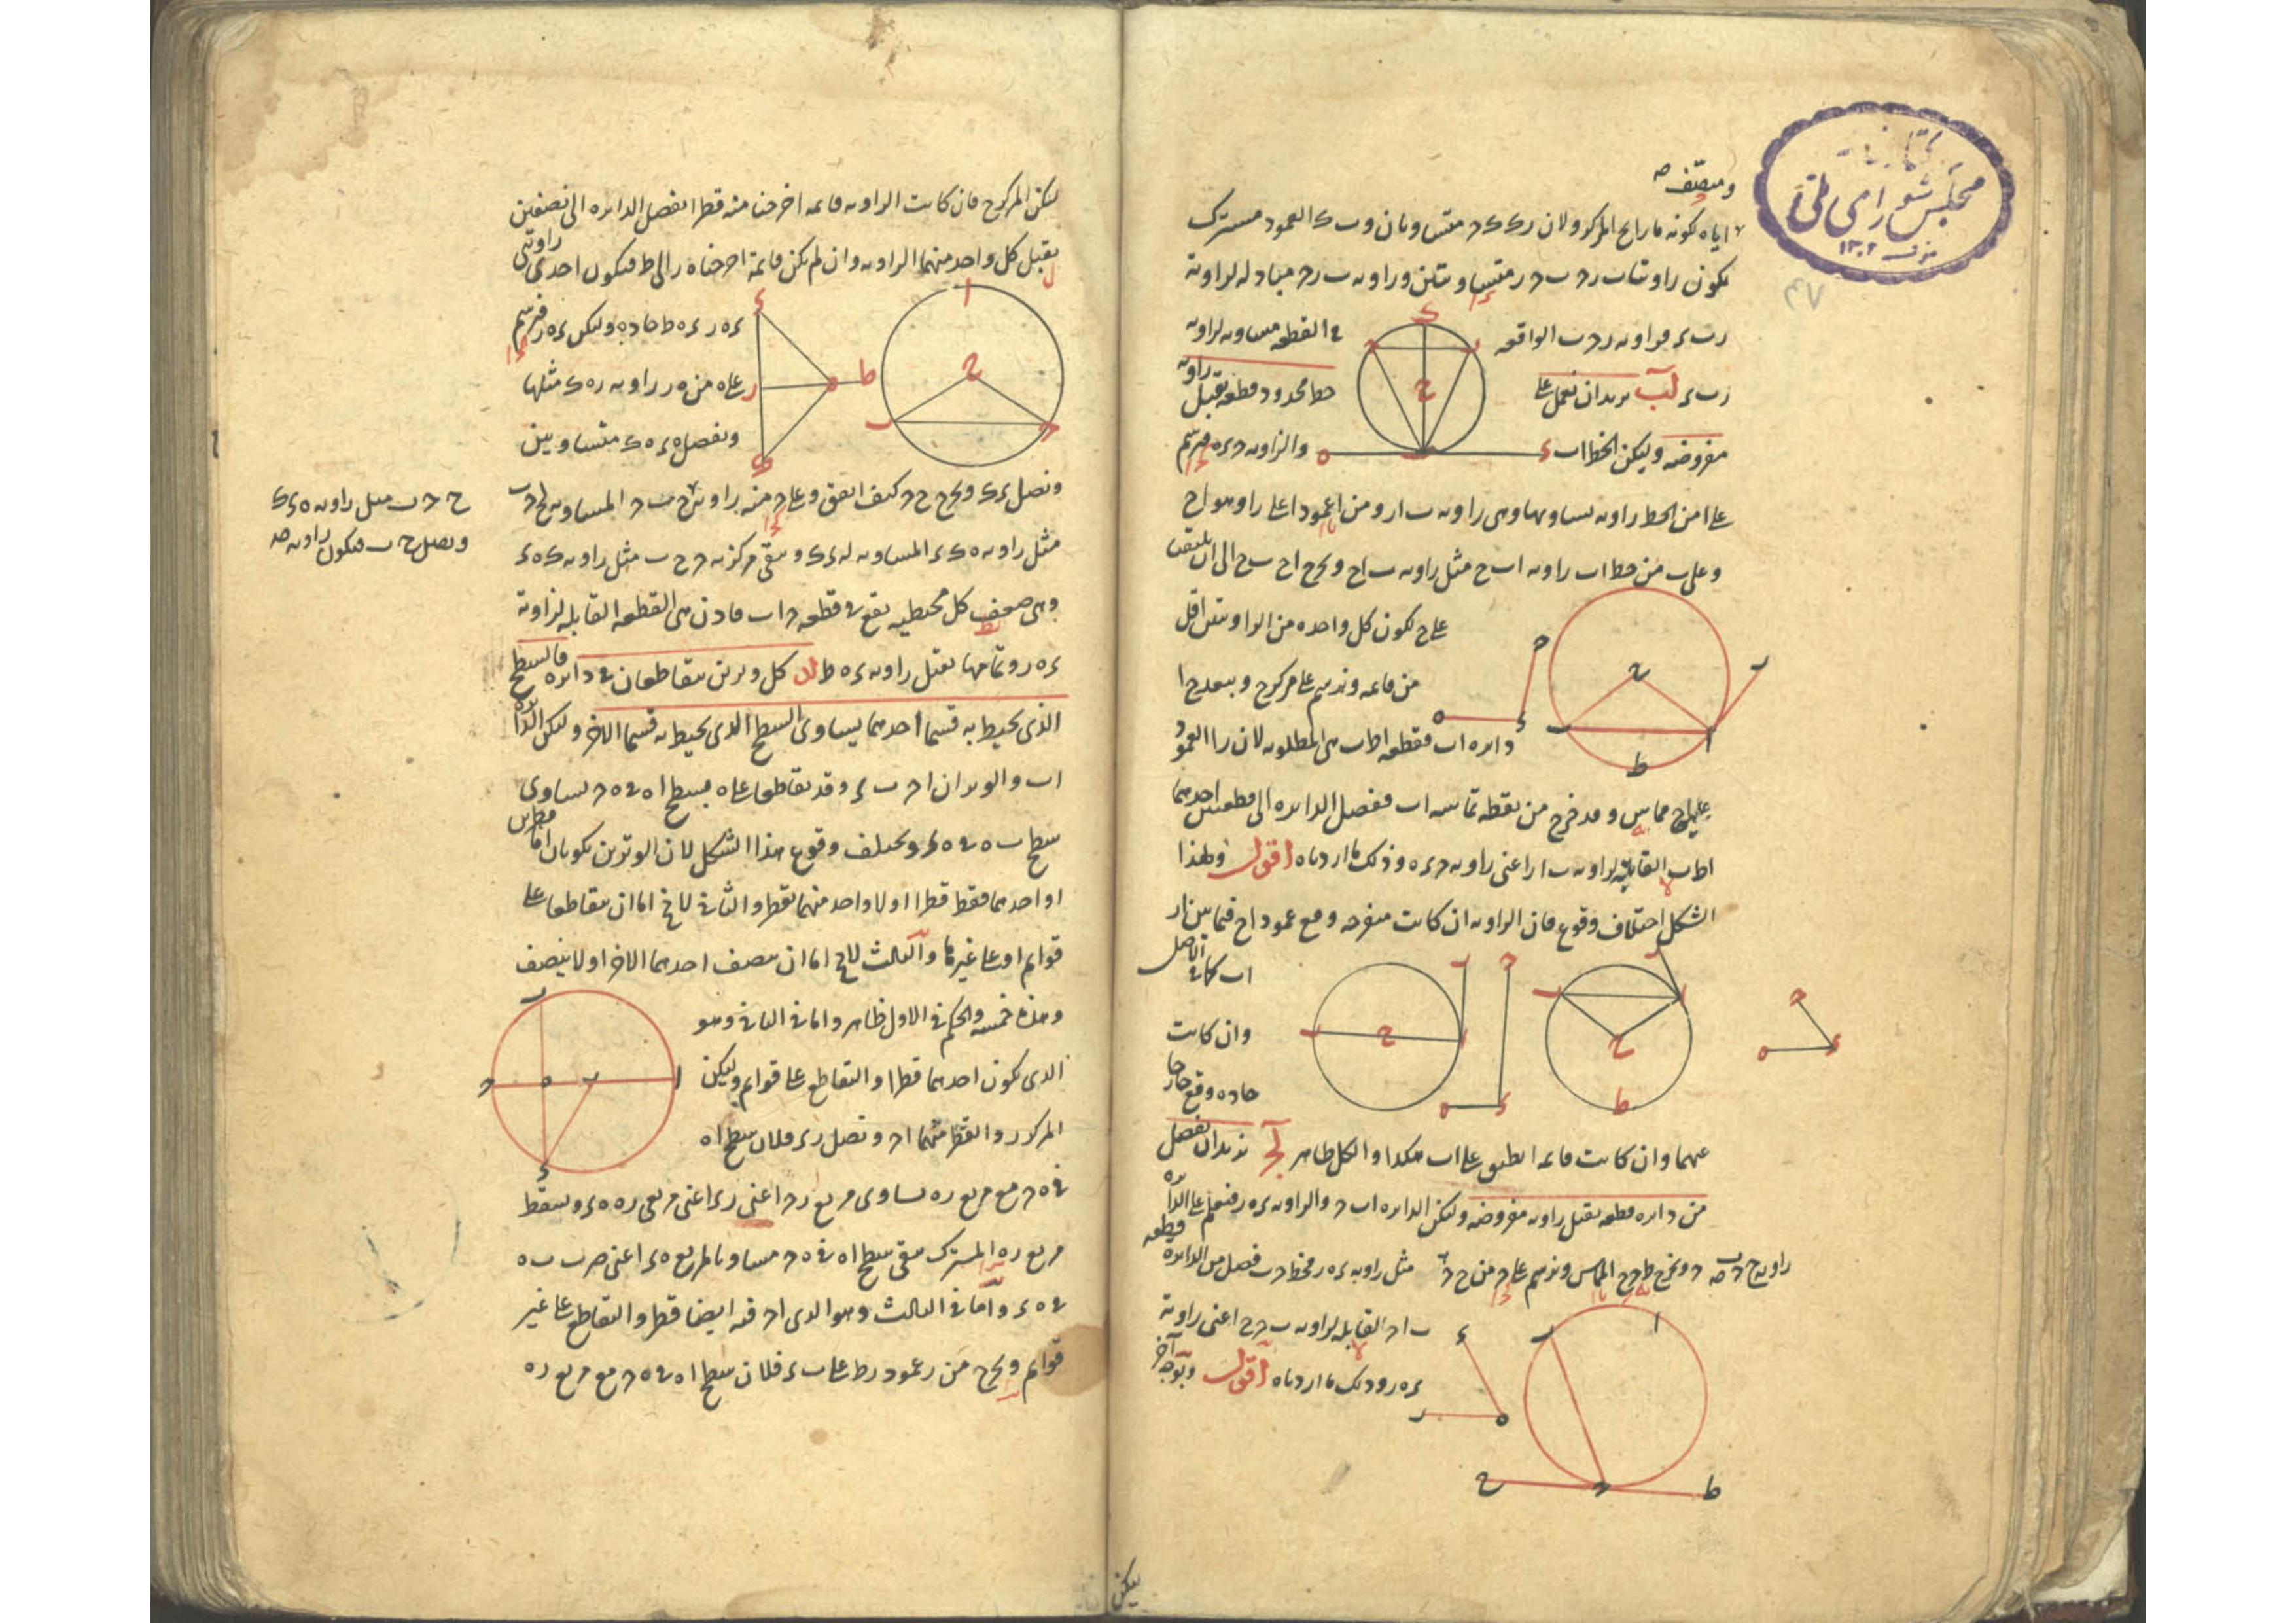 ومنصف
اياه لكونه مارا بح المركز ولان رك ك ح متساويان و ب ك العمود مشترك
يكون زاويتا ب ر ح ب ح ر متساويتين وزاويه ب ر ح مبادله لزاوية
ر ب ء فزاويه ر ح ب الواقعه في القطعه مساويه لزاويه
ر ب ء لب نريد ان نعمل على خط محدود قطعه يقبل زاويه
مفروضه وليكن الخط اب والزاويه ح ء ه فنرسم
على ا من الخط زاويه يساويها وهى زاويه ب ا ر ومن ا عمودا على را وهو اح
وعلى ب من خط اب زاويه اب ح مثل زاويه ب اح ونخرج اح ب ح الى ان يلتقيا
على ح لكون كل واحده من الزاويتين اقل
من قائمه ونرسم على مركز ح وببعد ح ا
دايره اب فقطعه اط ب هى المطلوبه لان را العمود
على اح مماس وقد خرج من نقطه تماسه اب ففصل الدايره الى قطعتين احدهما
اط ب القابله لزاويه ب ا ر اعنى زاويه ح ء ه وذلك ما اردناه اقول ولهذا
الشكل اختلاف وقوع فان الزاويه ان كانت منفرجه وقع عمود اح فيما بين ار
اب كما في الاصل
وان كانت
حاده وقع خارجا
عنهما وان كانت قائمه انطبق على اب هكذا والكل ظاهر لج نريد ان نفصل
من دايره قطعه يقبل زاويه مفروضه وليكن الدايره اب ح والزاويه ء ه ر فنعلم على الدايره
ونخرج ط ح ح المماس ونرسم على ح من ح ح زاويه ح ح ب مثل زاويه ء ه ر فخط ح ب فصل من الدايره قطعه
ب ا ح القابله لزاويه ب ح ح اعنى زاوية
ء ه ر وذلك ما اردناه اقول وبوجه آخر
ليكن
كتابخانه
مجلس شورای ملی
۱۳۰۲
۴۷
ليكن المركز ح فان كانت الزاويه قائمه اخرجنا منه قطرا انفصل الدايره الى نصفين
يقبل كل واحد منهما الزاويه وان لم يكن قائمة اخرجنا ه ر الى ط فيكون احدى زاويتى
ء ه ر ء ه ط حاده وليكن ء ه ر فنرسم
على ه من ه ر زاويه ر ه ك مثلها
ونفصل ه ء ه ك متساويين
ونصل ء ك ونخرج ح ح كيف اتفق وعلى ح منه زاويه ح ح ب مثل زاويه ه ء ك
ونصل ح ب فيكون زاويه ح ب ح المساويه ل ح ح ب
مثل زاويه ه ك ء المساويه ل ه ء ك ويبقى مركزيه ح ح ب مثل زاويه ك ه ء
وهى ضعف كل محيطيه يقع في قطعه ح اب فاذن هى القطعه القابله لزاوية
ء ه ر وتمامها يقبل زاويه ء ه ط لد كل وترين يتقاطعان في دايره فالسطح
الذى يحيط به قسما احدهما يساوى السطح الذى يحيط به قسما الاخر وليكن الدايره
اب والوتران اح ب ء وقد تقاطعا على ه فسطح ا ه في ه ح يساوى
سطح ب ه في ه ء ويختلف وقوع هذا الشكل لان الوترين يكونان اما قطرين
او احدهما فقط قطرا اولا واحد منهما بقطر والثانى لا يخ اما ان يتقاطعا على
قوايم او على غيرها والثالث لا يخ اما ان ينصف احدهما الاخر اولا ينصف
وهذه خمسه والحكم في الاول ظاهر واما في الثانى وهو
الذى يكون احدهما قطرا والتقاطع على قوايم وليكن
المركز ر والقطر منهما اح ونصل ر ء فلان سطح ا ه
في ه ح مع مربع ر ه يساوى مربع ر ح اعنى ر ء اعنى مربعى ر ه ه ء ويسقط
مربع ر ه المشترك يبقى سطح ا ه في ه ح مساويا لمربع ه ء اعنى ضرب ب ه
في ه ء واما في الثالث وهو الذى اح فيه ايضا قطر والتقاطع على غير
قوايم ونخرج من ر عمود ر ط على ب ء فلان سطح ا ه في ه ح مع مربع ر ه